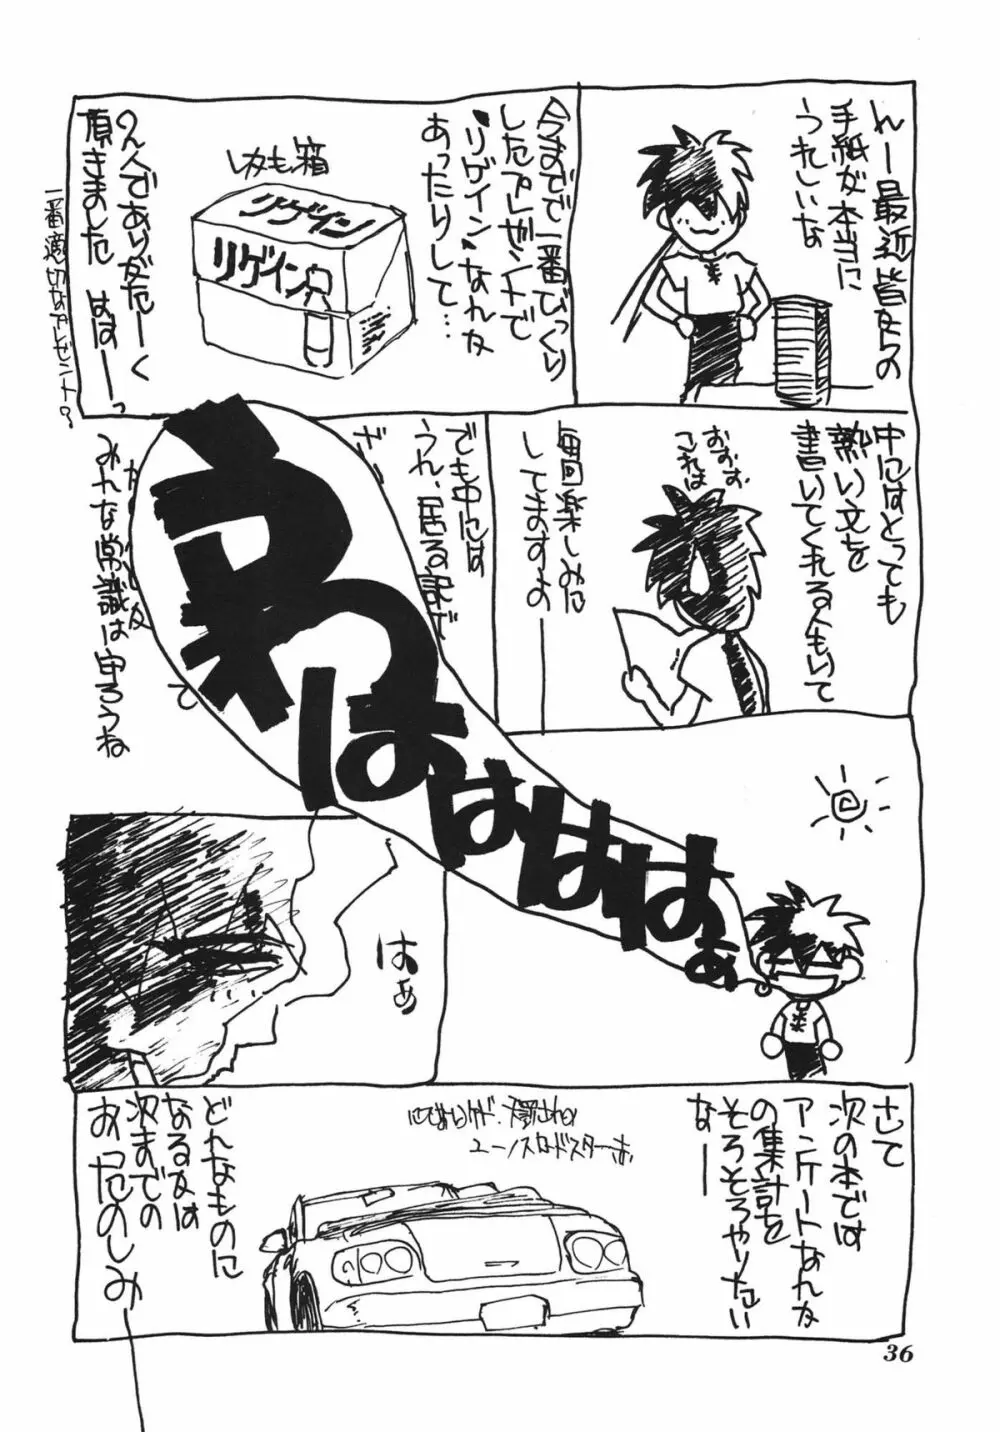 んー最近皆なの
手紙が本当に
うれしいな
今まで一番びっくり
したプレゼントで
"リゲイン"なんな
あったりして…
しかも箱
リゲイン
リゲイン
頂きました はは──っ
一番適切なプレゼント?
中にはとっても
熱い文を
書いてくれる人もいて
おおお
これは
毎回楽しみに
してますよの──
でも中には
うれ、居る訳で
みんな常識は守ろうね
わはははははぁ
はぁ
さて
次の本では
アンケートなんな
の集計を
そろそろやりたい
なー
ユーノスロードスターだ
どんなものに
なるかは
次までの
おったのしみ──
36